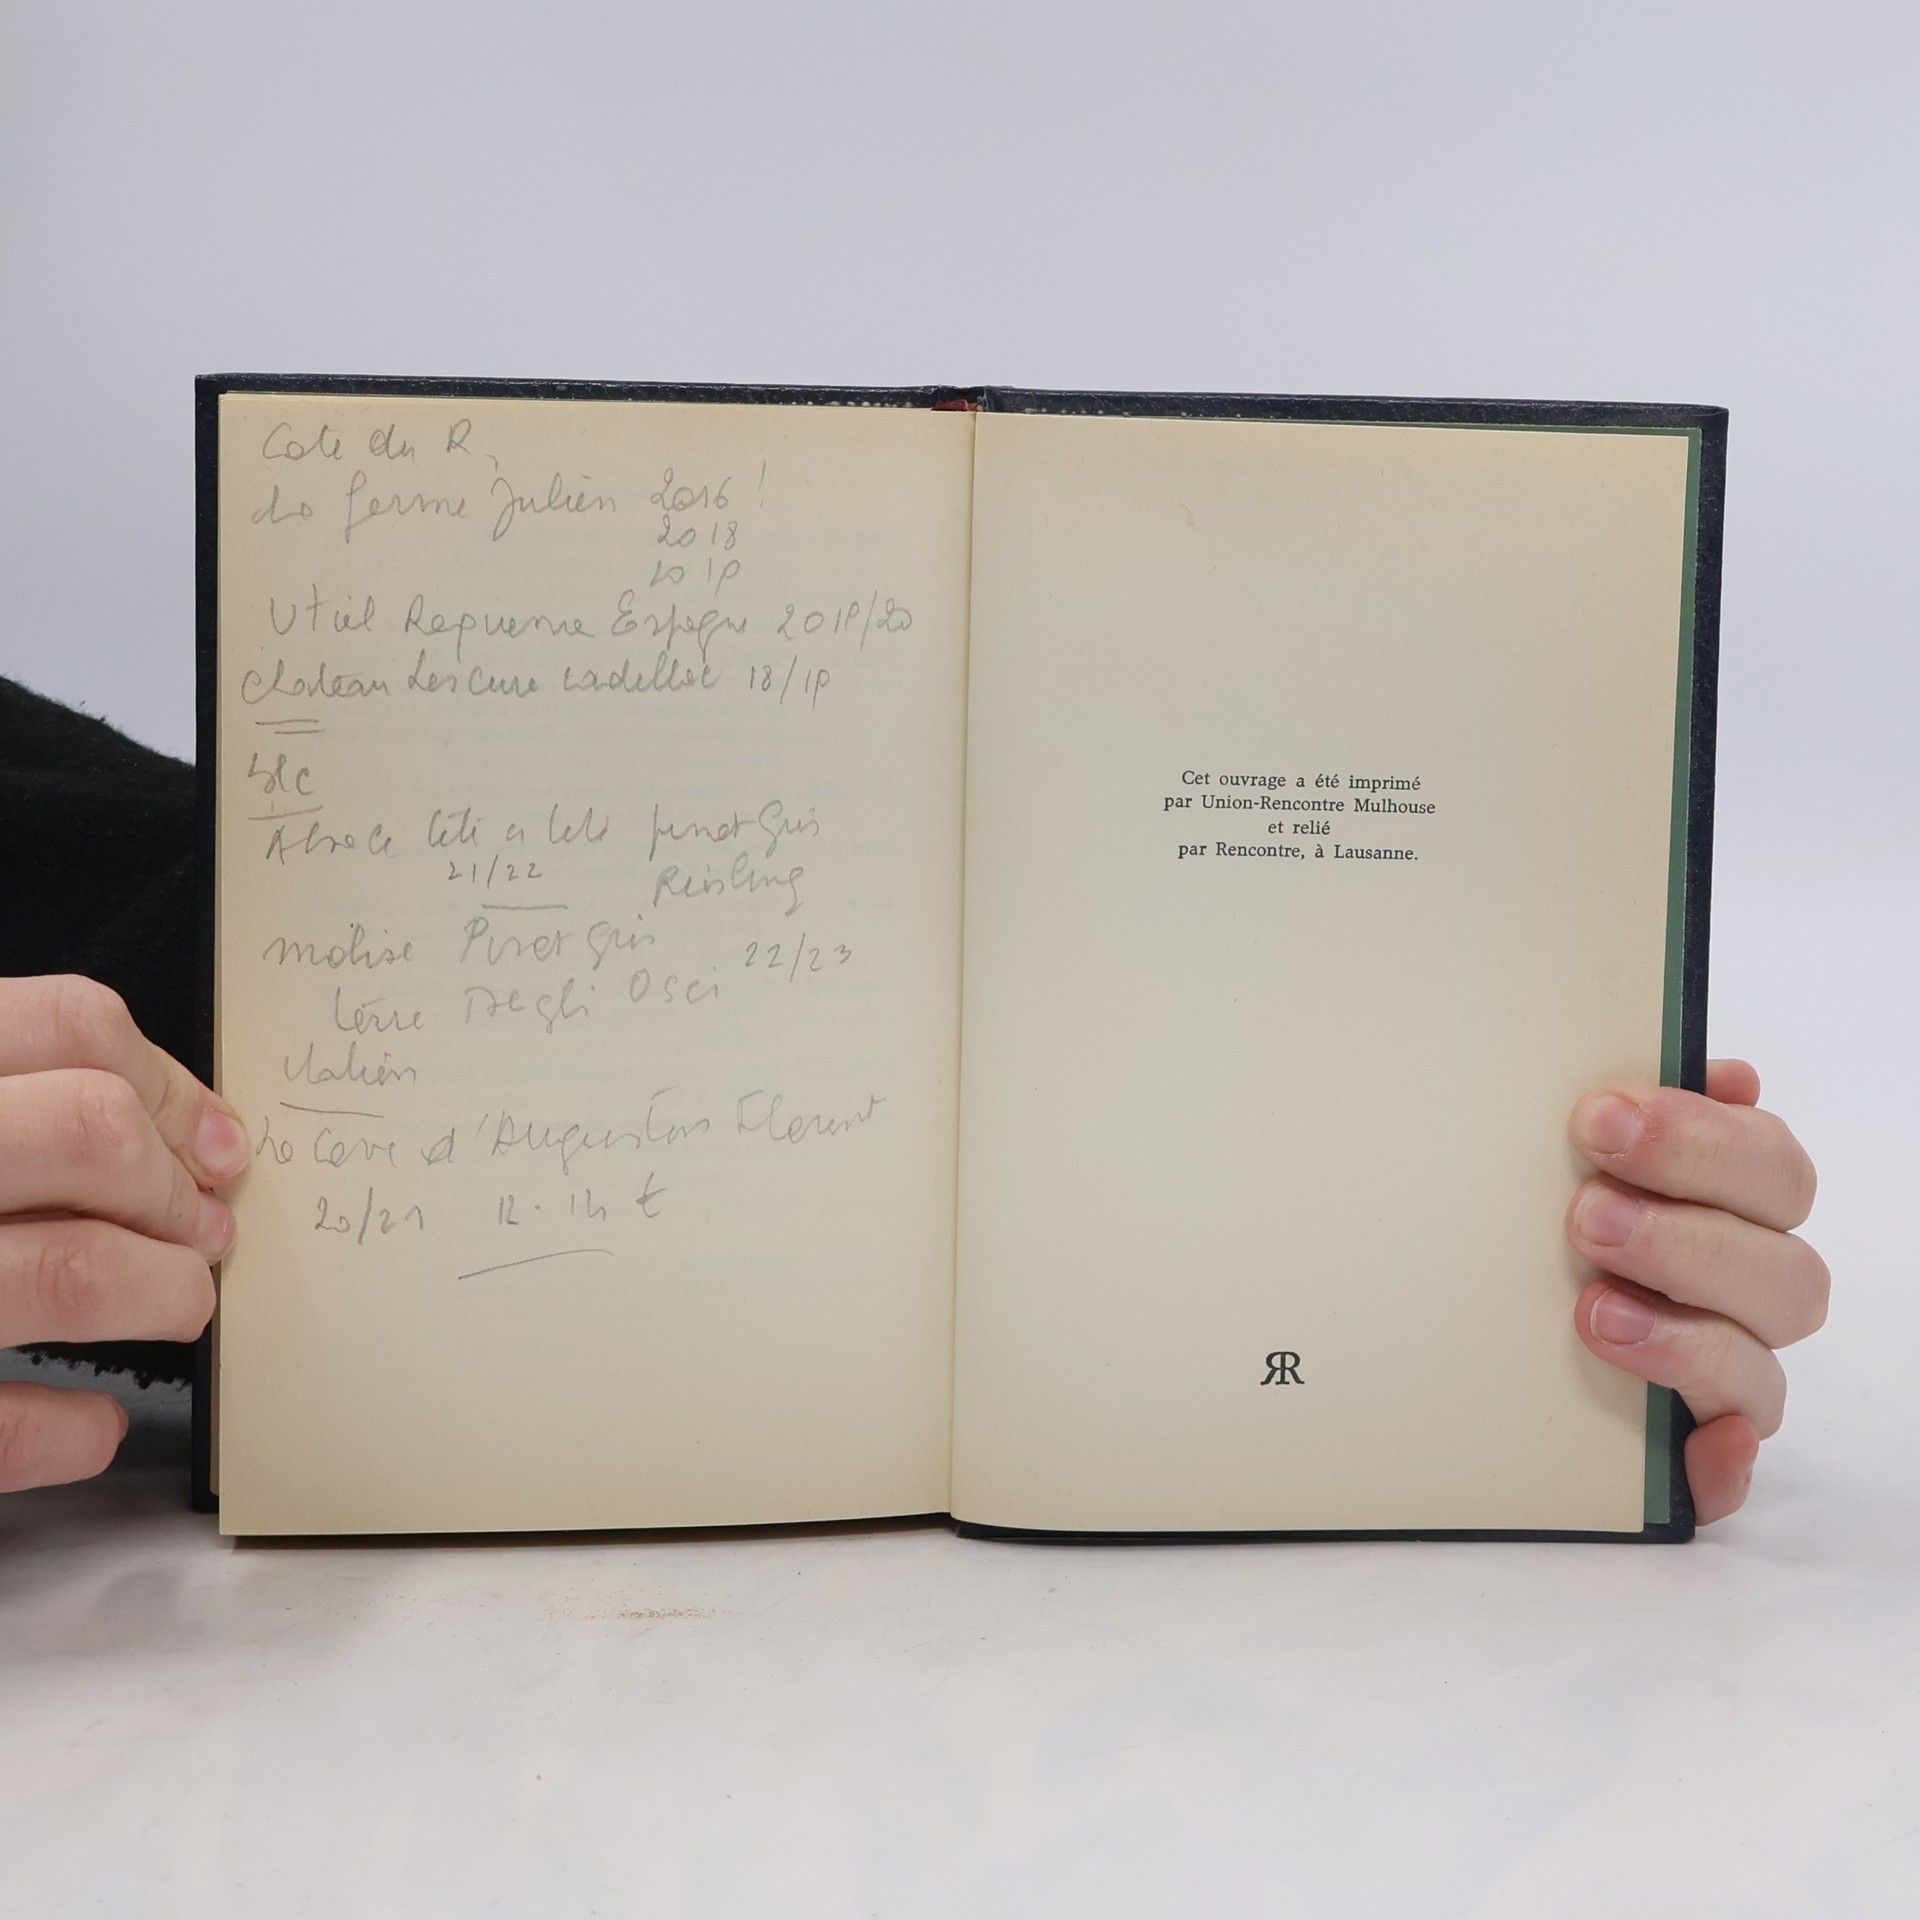 Cote du R,
La ferme Julien 2016 !
2018
2019
Utiel Requena Espagne 2019/20
Chateau Lescure cadillac 18/19
blc
Alsace tête a tete pinot Gris
21/22 Reisling
molise Pinot Gris
22/23
terre Degli Osci
italien
La Cave d'Augustus Florent
20/21 12. 14 €
Cet ouvrage a été imprimé
par Union-Rencontre Mulhouse
et relié
par Rencontre, à Lausanne.
RR